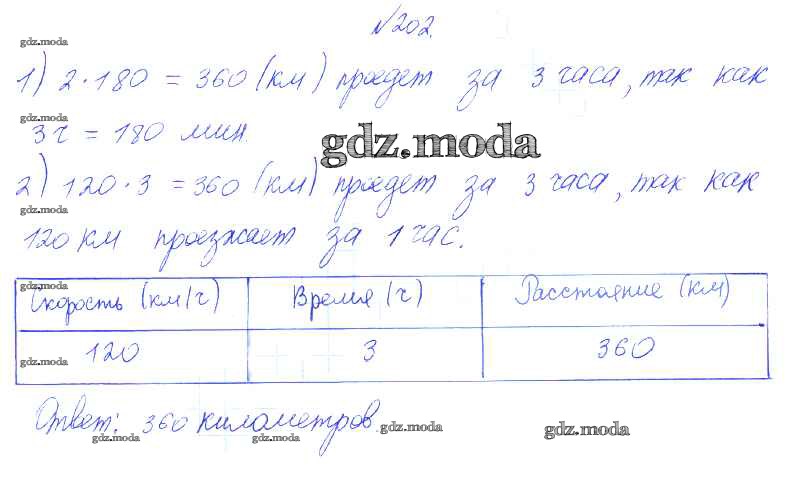 №202.
gdz.moda
1) 2·180 = 360 (км) проедет за 3 часа, так как
gdz.moda
3ч = 180 мин
gdz.moda
2) 120·3 = 360 (км) проедет за 3 часа, так как
gdz.moda
120 км проезжает за 1 час.
gdz.moda
Скорость (км/ч) Время (ч) Расстояние (км)
120 3 360
gdz.moda
Ответ: 360 километров.
gdz.moda gdz.moda gdz.moda gdz.moda